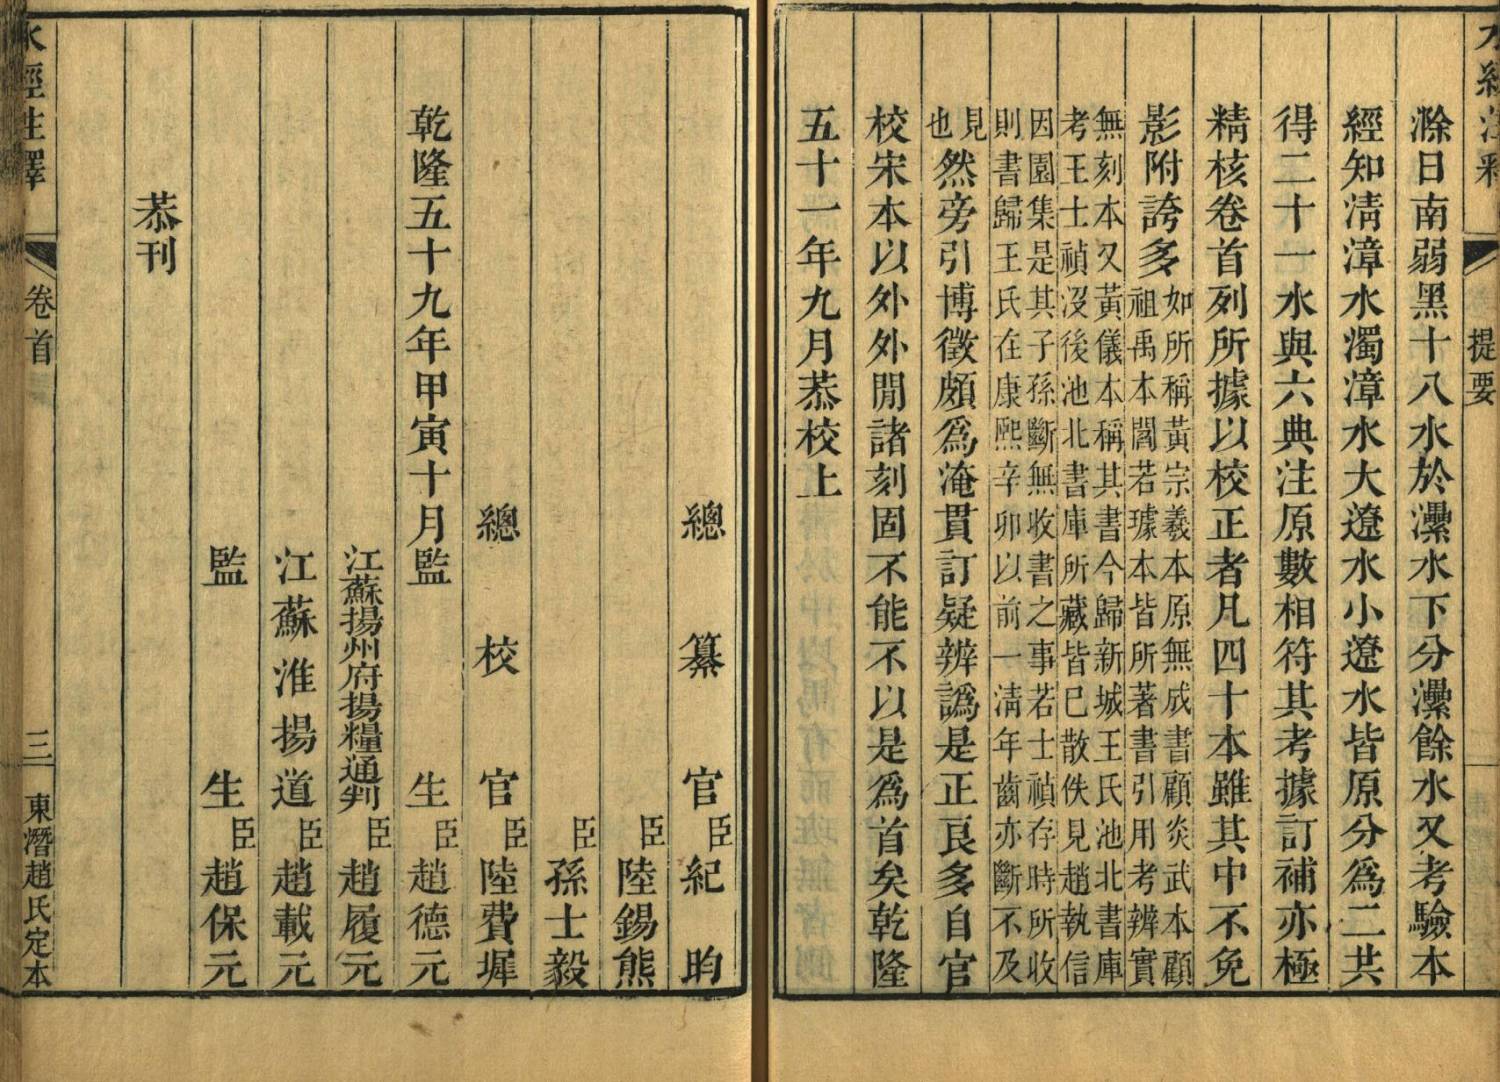 水經注釋 提要
滁日南弱黑十八水於灅水下分灅餘水又考驗本
經知清漳水濁漳水大遼水小遼水皆原分爲二共
得二十一水與六典注原數相符其考據訂補亦極
精核卷首列所據以校正者凡四十本雖其中不免
影附誇多
如所稱黃宗羲本原無成書顧炎武本顧
祖禹本閻若璩本皆所著書引用考辨實
無刻本又黃儀本稱其書今歸新城王氏池北書庫
考王士禎沒後池北書庫所藏皆已散佚見趙執信
因園集是其子孫斷無收書之事若士禎存時所收
則書歸王氏在康熙辛卯以前一清年齒亦斷不及
見
也
然旁引博徵頗爲淹貫訂疑辨譌是正良多自官
校宋本以外外閒諸刻固不能不以是爲首矣乾隆
五十一年九月恭校上
總纂官臣紀昀
臣陸錫熊
臣孫士毅
總校官臣陸費墀
乾隆五十九年甲寅十月監生臣趙德元
江蘇揚州府揚糧通判臣趙履元
江蘇淮揚道臣趙載元
監生臣趙保元
恭刊
水經注釋 卷首 三 東潛趙氏定本